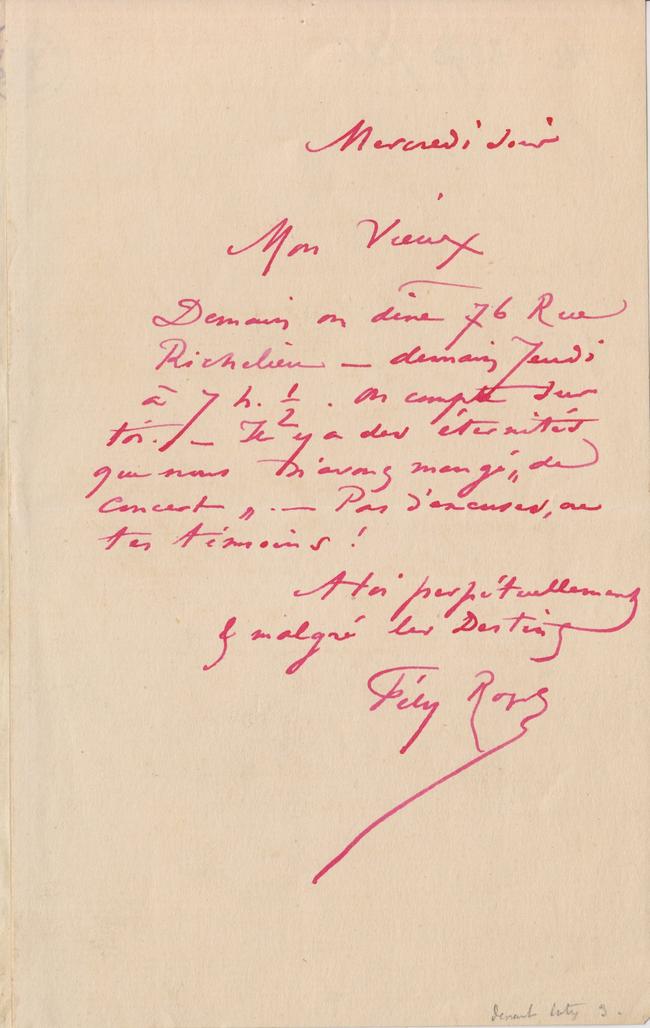 Mercredi soir
Mon Vieux
Demain on dine 76 Rue
Richelieu — demain Jeudi
à 7 h. 1/2. On compte sur
toi. — Il y a des éternités
que nous n'avons mangé „de
concert„. — Pas d'excuses, ou
tes témoins !
A toi perpétuellement
& malgré les Destins
Fély Rops